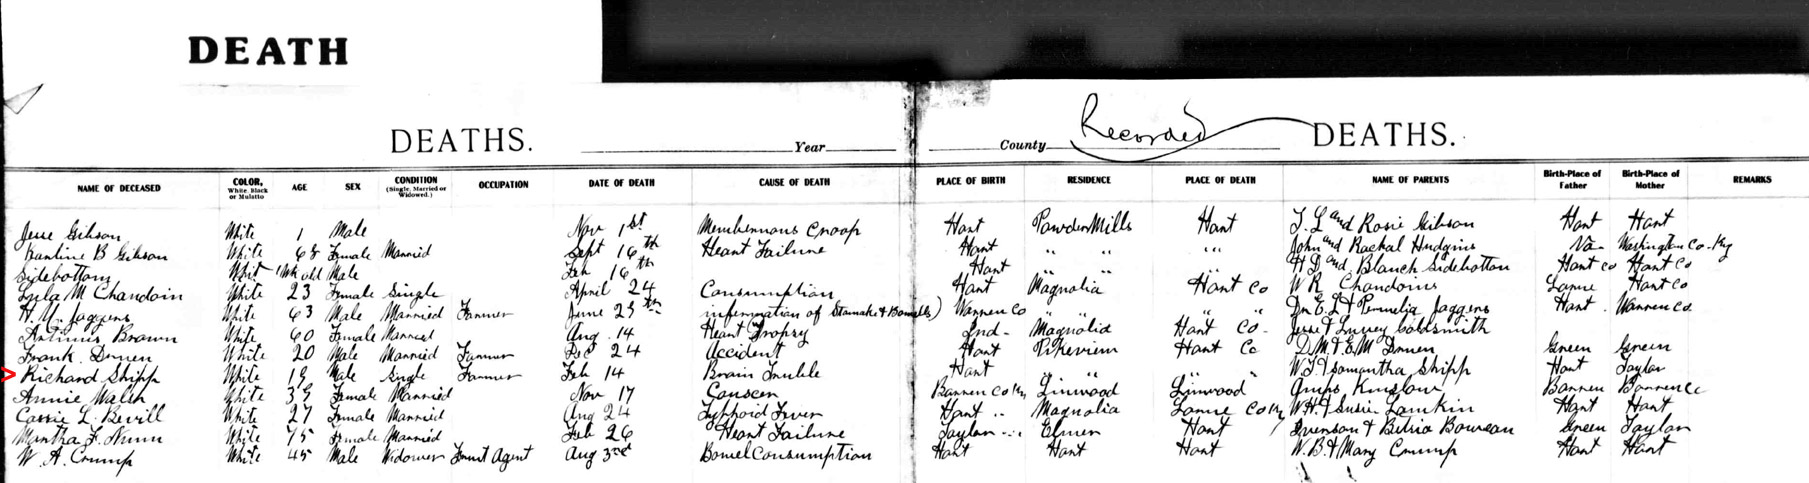 DEATH
DEATHS. Year County Recorded DEATHS.
NAME OF DECEASED COLOR, White, Black or Mulatto AGE SEX CONDITION (Single, Married or Widowed.) OCCUPATION DATE OF DEATH CAUSE OF DEATH PLACE OF BIRTH RESIDENCE PLACE OF DEATH NAME OF PARENTS Birth-Place of Father Birth-Place of Mother REMARKS
Jesse Gibson White 1 Male Nov 1st Membennous Croop Hart Powder Mills Hart J. L and Rosie Gibson Hart Hart
B Gibson White 68 Female Married Sept 16th Heart Failure Hart " " " " John and Rachal Hudgins Va Washington Co. Ky
Sidebottom Whit 1 Wk old Male Feb 16th Hart " " H D and Blanch Sidebottom Hart co Hart Co
Lyla M Chandoin White 23 Female Single April 24 Consumption Hart Magnolia Hart Co W R Chandoin Larue Hart Co
H. Y. Jaggers White 63 Male Married Farmer June 25th infermation of Stomake & Bowells) Warren Co " " " " Dr E. L & Permelia Jaggers Hart Warren Co.
Brown White 60 Female Married Aug. 14 Heart Dropsy Ind- Magnolia Hart Co- Jesse & Luvey Goldsmith
Frank Druen White 20 Male Married Farmer Dec 24 Accident Hart Pikeview Hart Co D. M. & E. M Druen Green Green
> Richard Shipp White 19 Male Single Farmer Feb 14 Brain Truble Hart " " W. T. & Samantha Shipp Hart Taylor
Annie Walsh White 39 Female Married Nov 17 Canscer Barren Co Ky Linwood Linwood Kinslow Barren Barren Co
Cassie L. Bevill White 27 Female Married Aug 24 Typhoid Fiver Hart " Magnolia Larue Co Ky W. H. & Susie Lamkin Hart Hart
Martha J. Nunn White 75 Female Married Feb 26 Heart Failure Taylor Hart & Green Taylor
W. A. Crump White 45 Male Widower Agent Aug 3rd Bowel Consumption Hart Hart Hart W. B. & Mary Crump Hart Hart